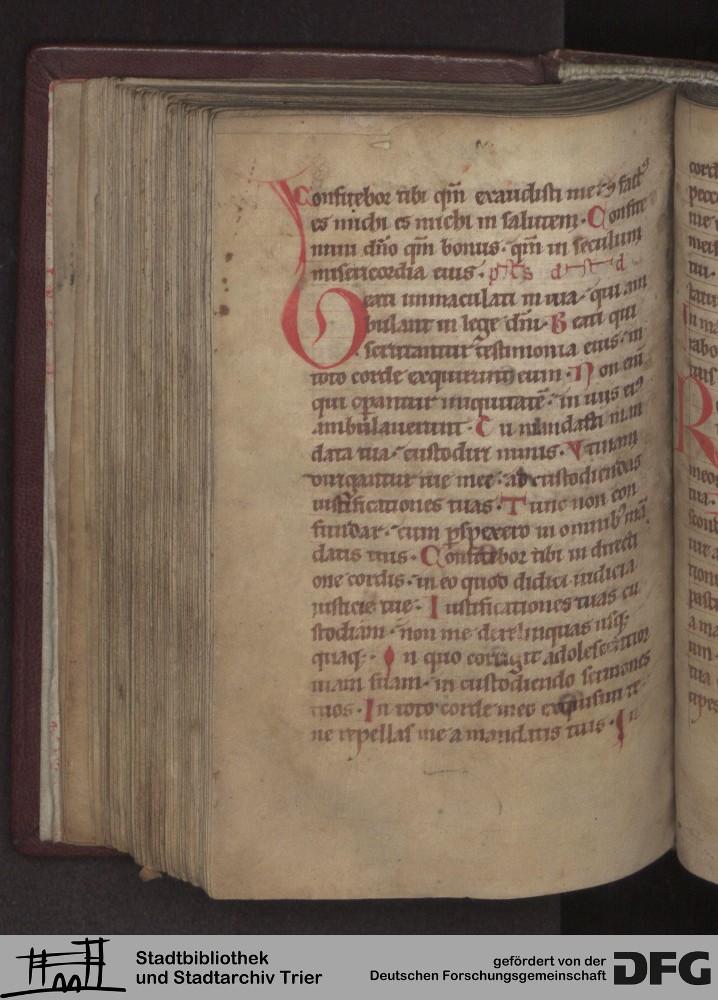 Confitebor tibi qm̄ exaudisti me ⁊ factꝰ
es michi es michi in salutem. Confite
mini dn̄o qm̄ bonus. qm̄ in seculum
misericordia eius.
Beati immaculati in uia. qui am
bulant in lege dn̄i. Beati qui
scrutantur testimonia eius. in
toto corde exquirunt eum. Non eni
qui opantur iniquitatē. in uiis eiꝰ
ambulauerunt. Tu mandasti man
data tua. custodiri nimis. Vtinam
dirigantur uie mee. ad custodiendas
iustificationes tuas. Tunc non con
fundar. cum ꝑspexero in omnibꝰ mā
datis tuis. Confitebor tibi in directi
one cordis. in eo quod didici iudicia
iusticie tue. Iustificationes tuas cu
stodiam. non me derelinquas usq;
quaq;. In quo corrigit adolescentior
uiam suam. in custodiendo sermones
tuos. In toto corde meo exquisiui te
ne repellas me a mandatis tuis. In
Stadtbibliothek
und Stadtarchiv Trier
gefördert von der
Deutschen Forschungsgemeinschaft
DFG